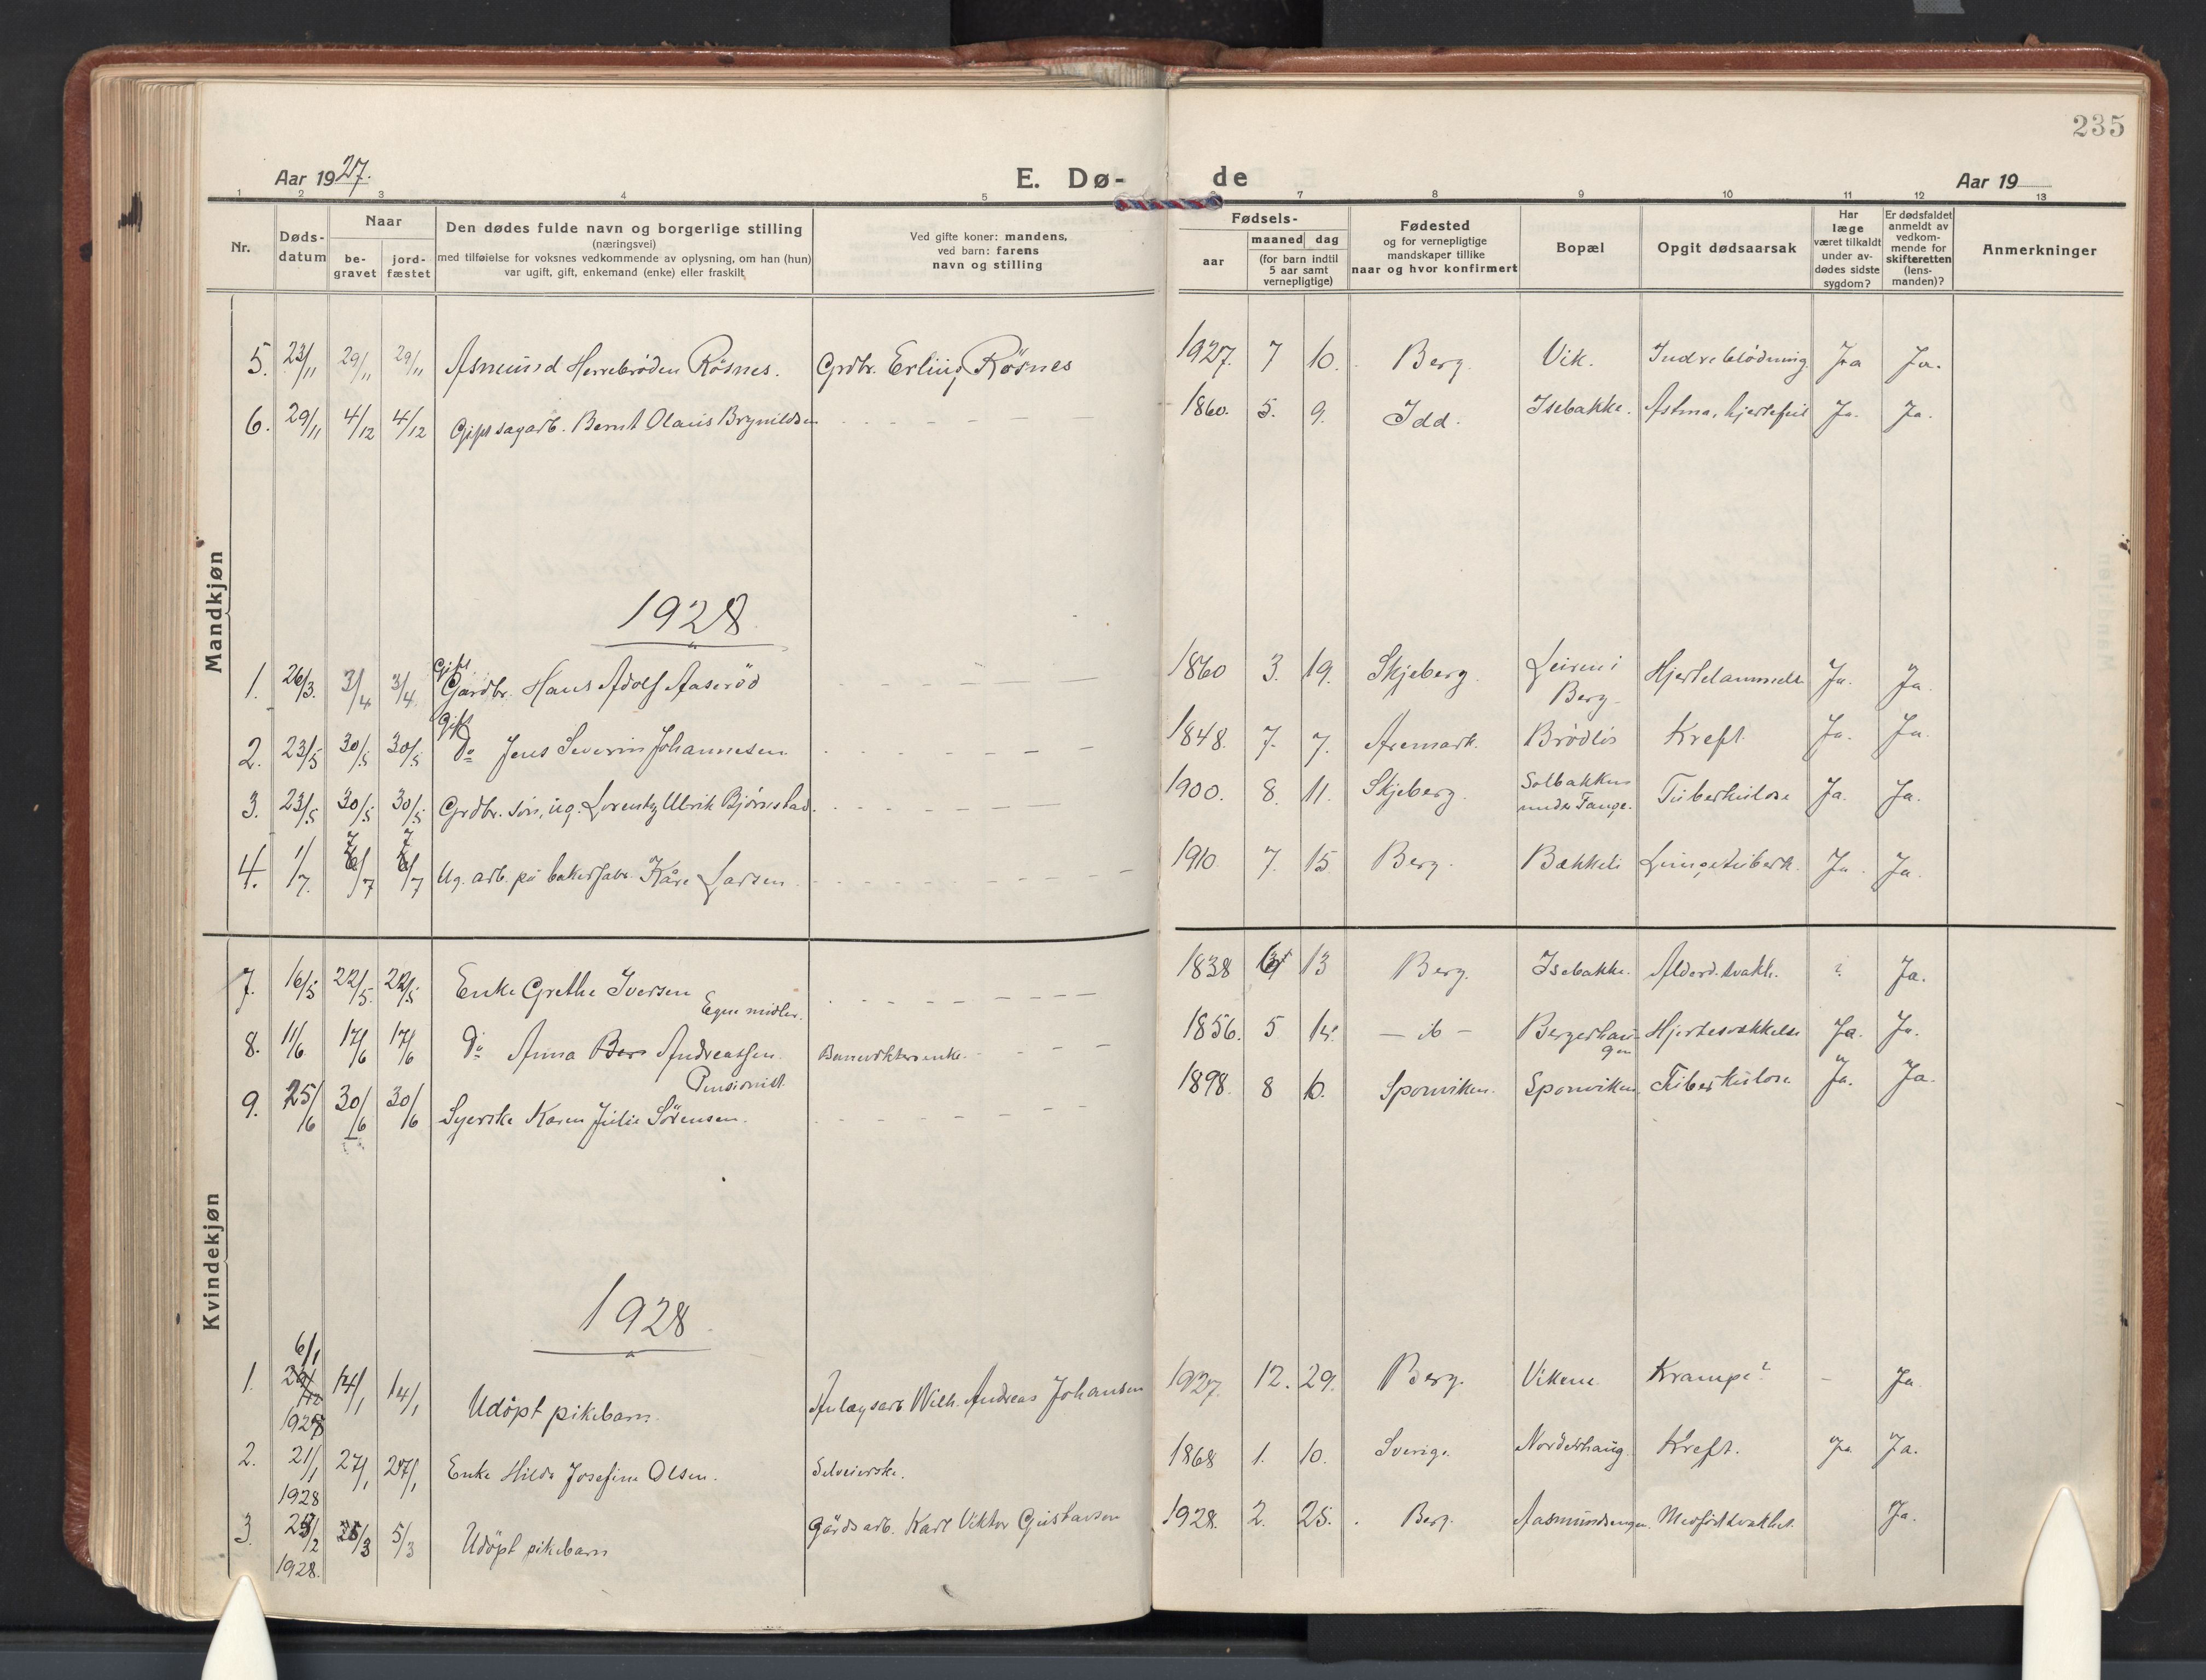 235
Aar 1927.
E. Dø-
de
Aar 19
1 2 3 4 5 7 8 9 10 11 12 13
Nr.
Døds-
datum
Naar
be-
gravet
jord-
fæstet
Den dødes fulde navn og borgerlige stilling
(næringsvei)
med tilføielse for voksnes vedkommende av oplysning, om han (hun)
var ugift, gift, enkemand (enke) eller fraskilt
Ved gifte koner: mandens,
ved barn: farens
navn og stilling
Fødsels-
aar
maaned dag
(for barn indtil
5 aar samt
vernepligtige)
Fødested
og for vernepligtige
mandskaper tillike
naar og hvor konfirmert
Bopæl
Opgit dødsaarsak
Har
læge
været tilkaldt
under av-
dødes sidste
sygdom?
Er dødsfaldet
anmeldt av
vedkom-
mende for
skifteretten
(lens-
manden)?
Anmerkninger
Mandkjøn
5. 23/11 29/11 29/11 Asmund Herrebrøden Røsnes. Grdbr. Erling Røsnes 1927. 7 10. Berg. Vik. Indre blödning Ja Ja.
6. 29/11 4/12 4/12 Gift sagarb. Bernt Olaus Brynildsen - - - - - 1860. 5. 9. Idd. Isebakke. Astma, hjertefeil Ja. Ja.
1928
1. 26/3. 3/4 3/4. Gift Gardbr. Hans Adolf Aaserød - - - - - 1860 3. 19. Skjeberg. Leiren i Berg. Hjertelammelse Ja. Ja.
2. 23/5 30/5 30/5 Gift do Jens Severin Johannesen - - - - - 1848. 7. 7. Aremark. Brödlös Kreft. Ja. Ja.
3. 23/5 30/5 30/5 Grdbr. søn, ug. Lorentz Ulrik Bjørnstad. - - - - - 1900. 8. 11. Skjeberg. Solbakken under Tange. Tuberkulose Ja. Ja.
4. 1/7. 7/7 7/7 Ug. arb. på Kåre Larsen. - - - - - 1910 7. 15. Berg. Bækkeli Lungetuberk. Ja. Ja.
Kvindekjøn
7. 16/5 22/5. 22/5 Enke Grethe Iversen Egne midler. - - - - - 1838 13 Berg. Isebakke. Alderd.svakh. ? Ja.
8. 11/6 17/6 17/6 do Anna Ber Andreassen. Pensionist Banevokters enke. - - - - 1856. 5 14. - ib - Bergerhaugen Hjertesvækkelse Ja. Ja.
9. 25/6 30/6 30/6 Syerske Karen Julie Sörensen. - - - - - 1898. 8 10. Sponviken. Sponviken. Tuberkulose Ja. Ja.
1928
1. 6/1 1928 14/1 14/1 Udöpt pikebarn. Anlægsarb. Wilh. Andreas Johansen 1927. 12. 29. Berg. Vikene Krampe? - Ja
2. 21/1 1928 27/1 27/1 Enke Hilda Josefine Olsen. Selveierske. 1868 1. 10. Sverige. Norderhaug. Kreft. Ja Ja.
3. 25/2 1928. 5/3 5/3 Udöpt pikebarn Gårdsarb. Karl Viktor Gustavsen 1928. 2. 25. Berg. Aasmundsengen. Medfödt svakhet. Ja.